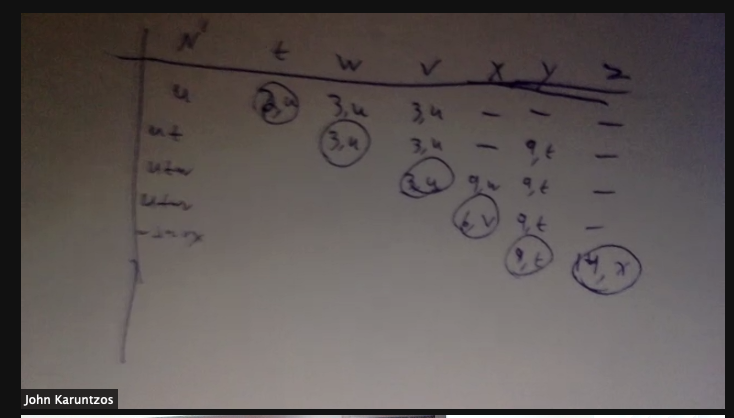 N' t w v x y z
u 3,u 3,u 3,u - - -
ut 3,u 3,u - 9,t -
utw 3,u 9,w 9,t -
6,v 9,t -
9,t 14,x
John Karuntzos